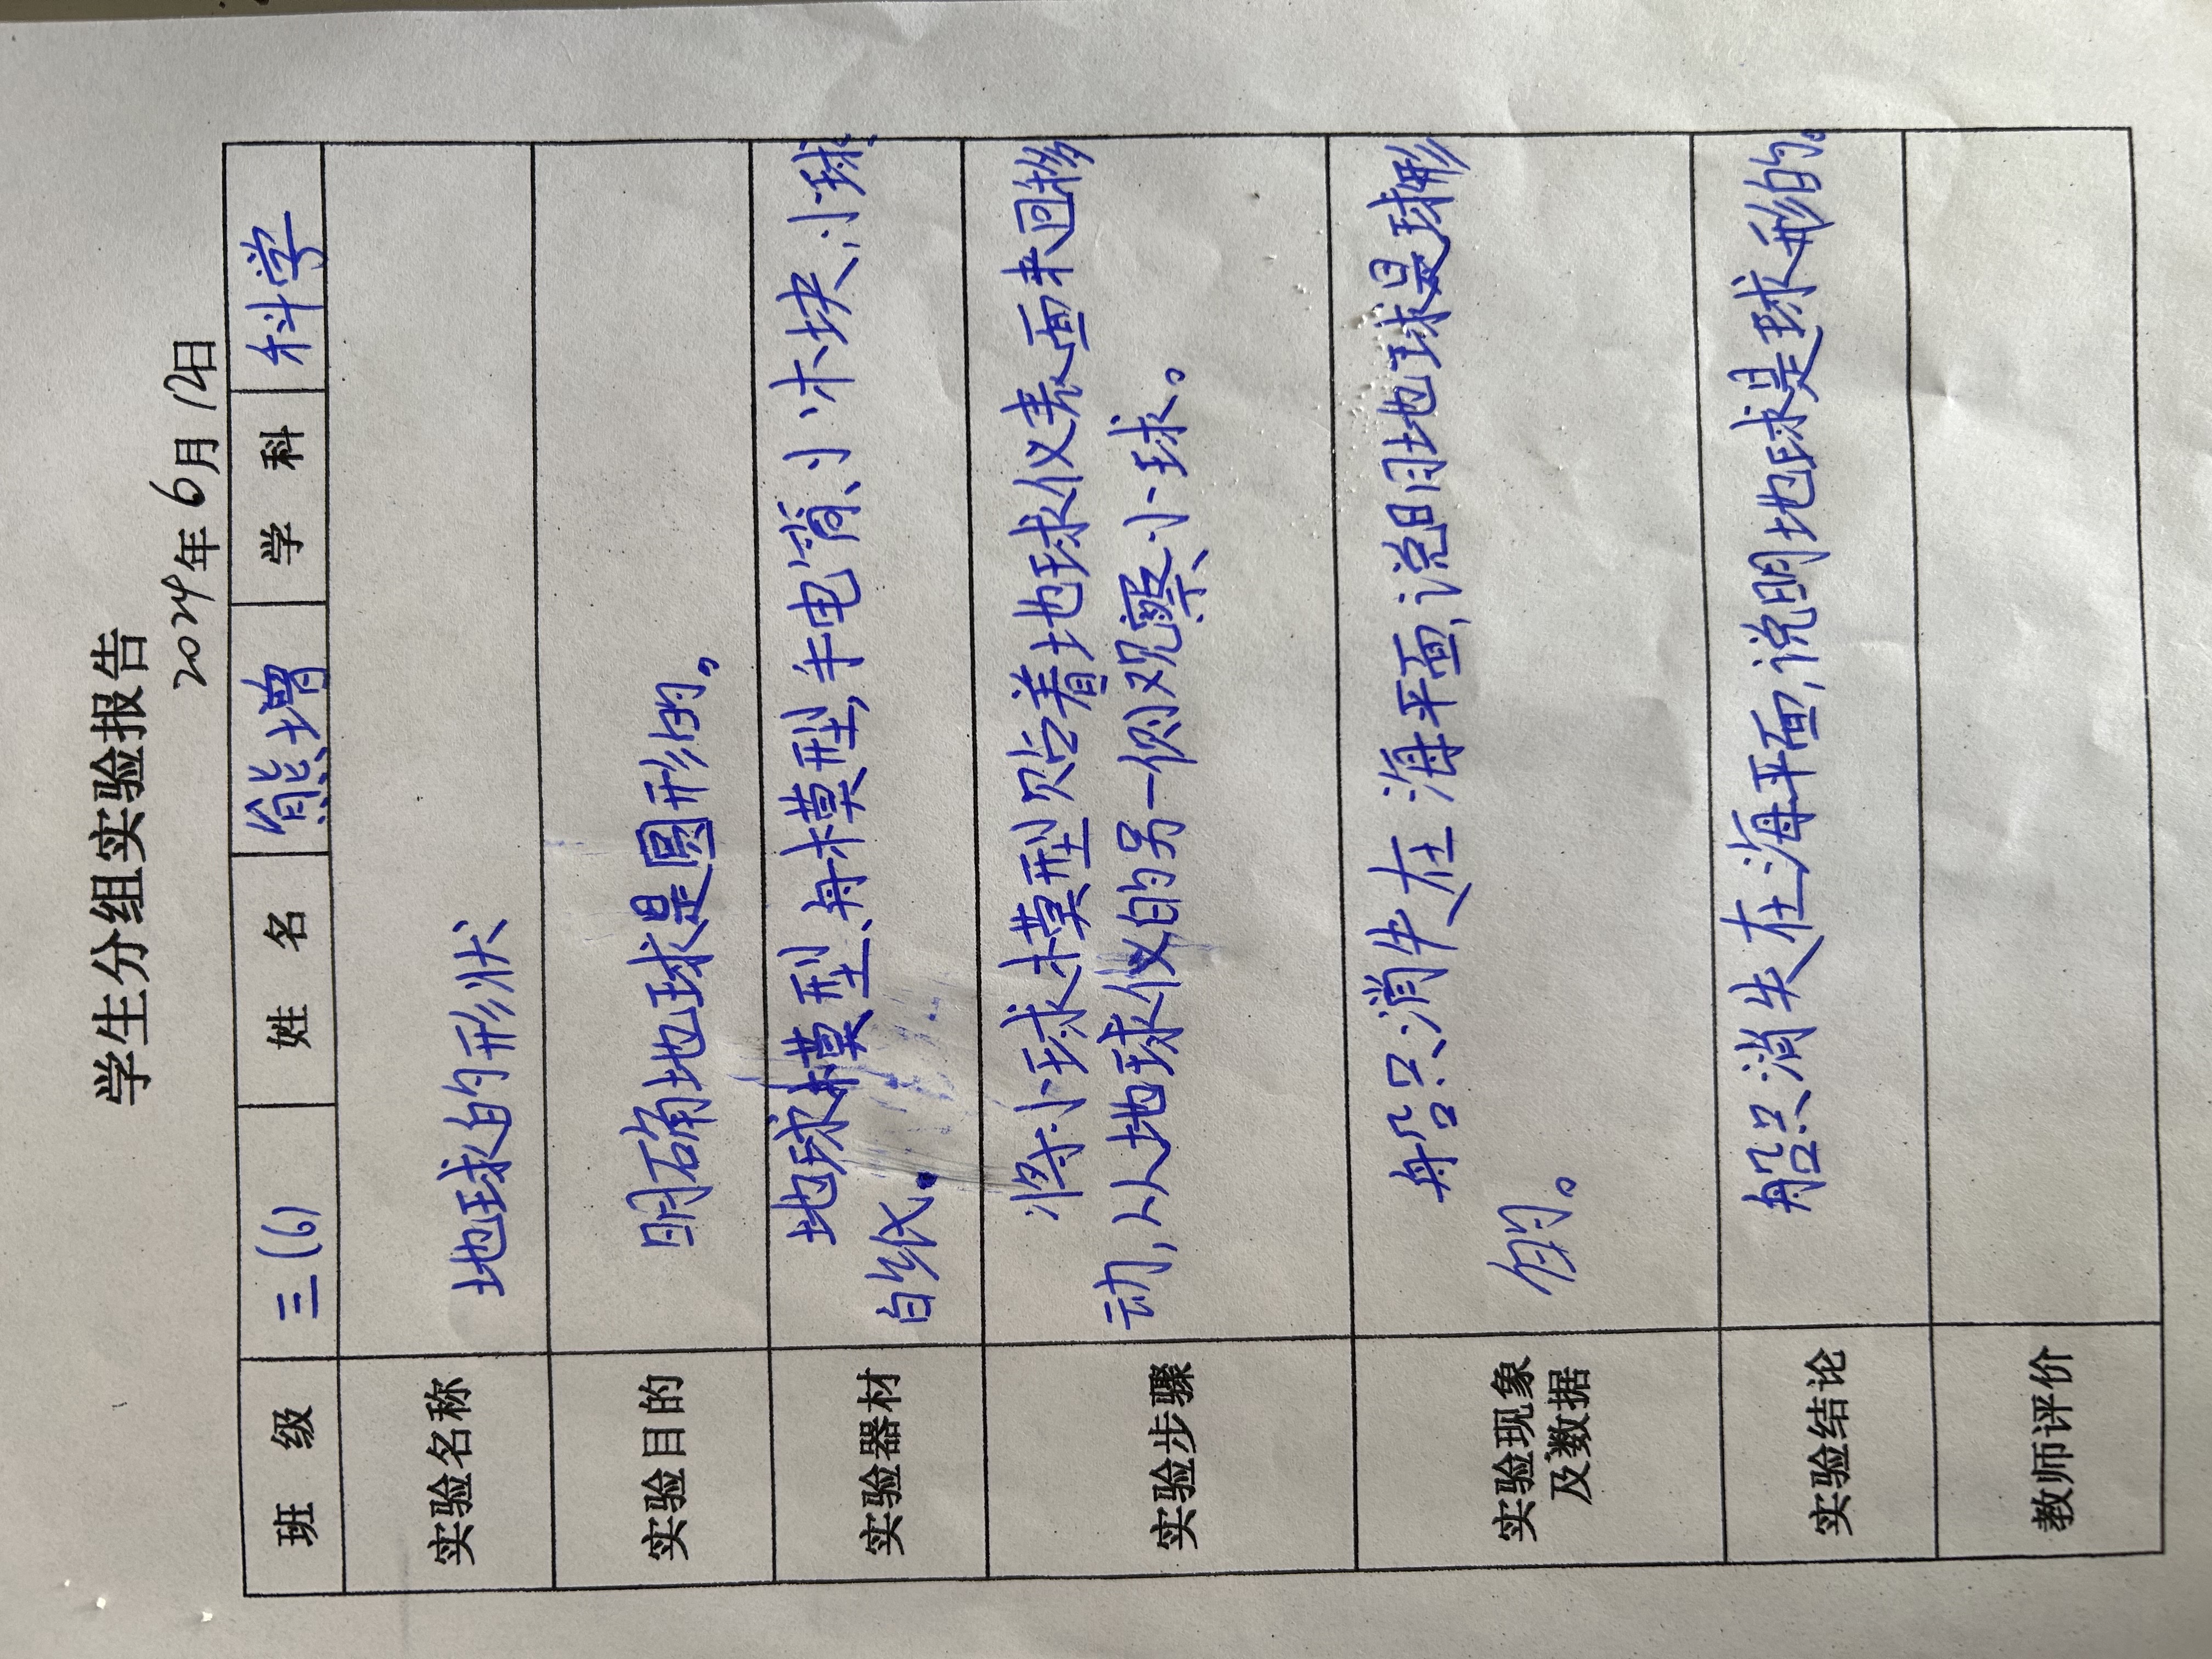 学生分组实验报告
2024年6月12日
班 级 三(6) 姓 名 熊增 学 科 科学
实验名称 地球的形状
实验目的 明确地球是圆形的。
实验器材 地球模型、舟模型,手电筒、小木块、小球、
白纸。
实验步骤 将小球模型贴着地球仪表面来回移
动,从地球仪的另一侧观察小球。
实验现象
及数据
船只消失在海平面,说明地球是球形
的。
实验结论 船只消失在海平面,说明地球是球形的。
教师评价